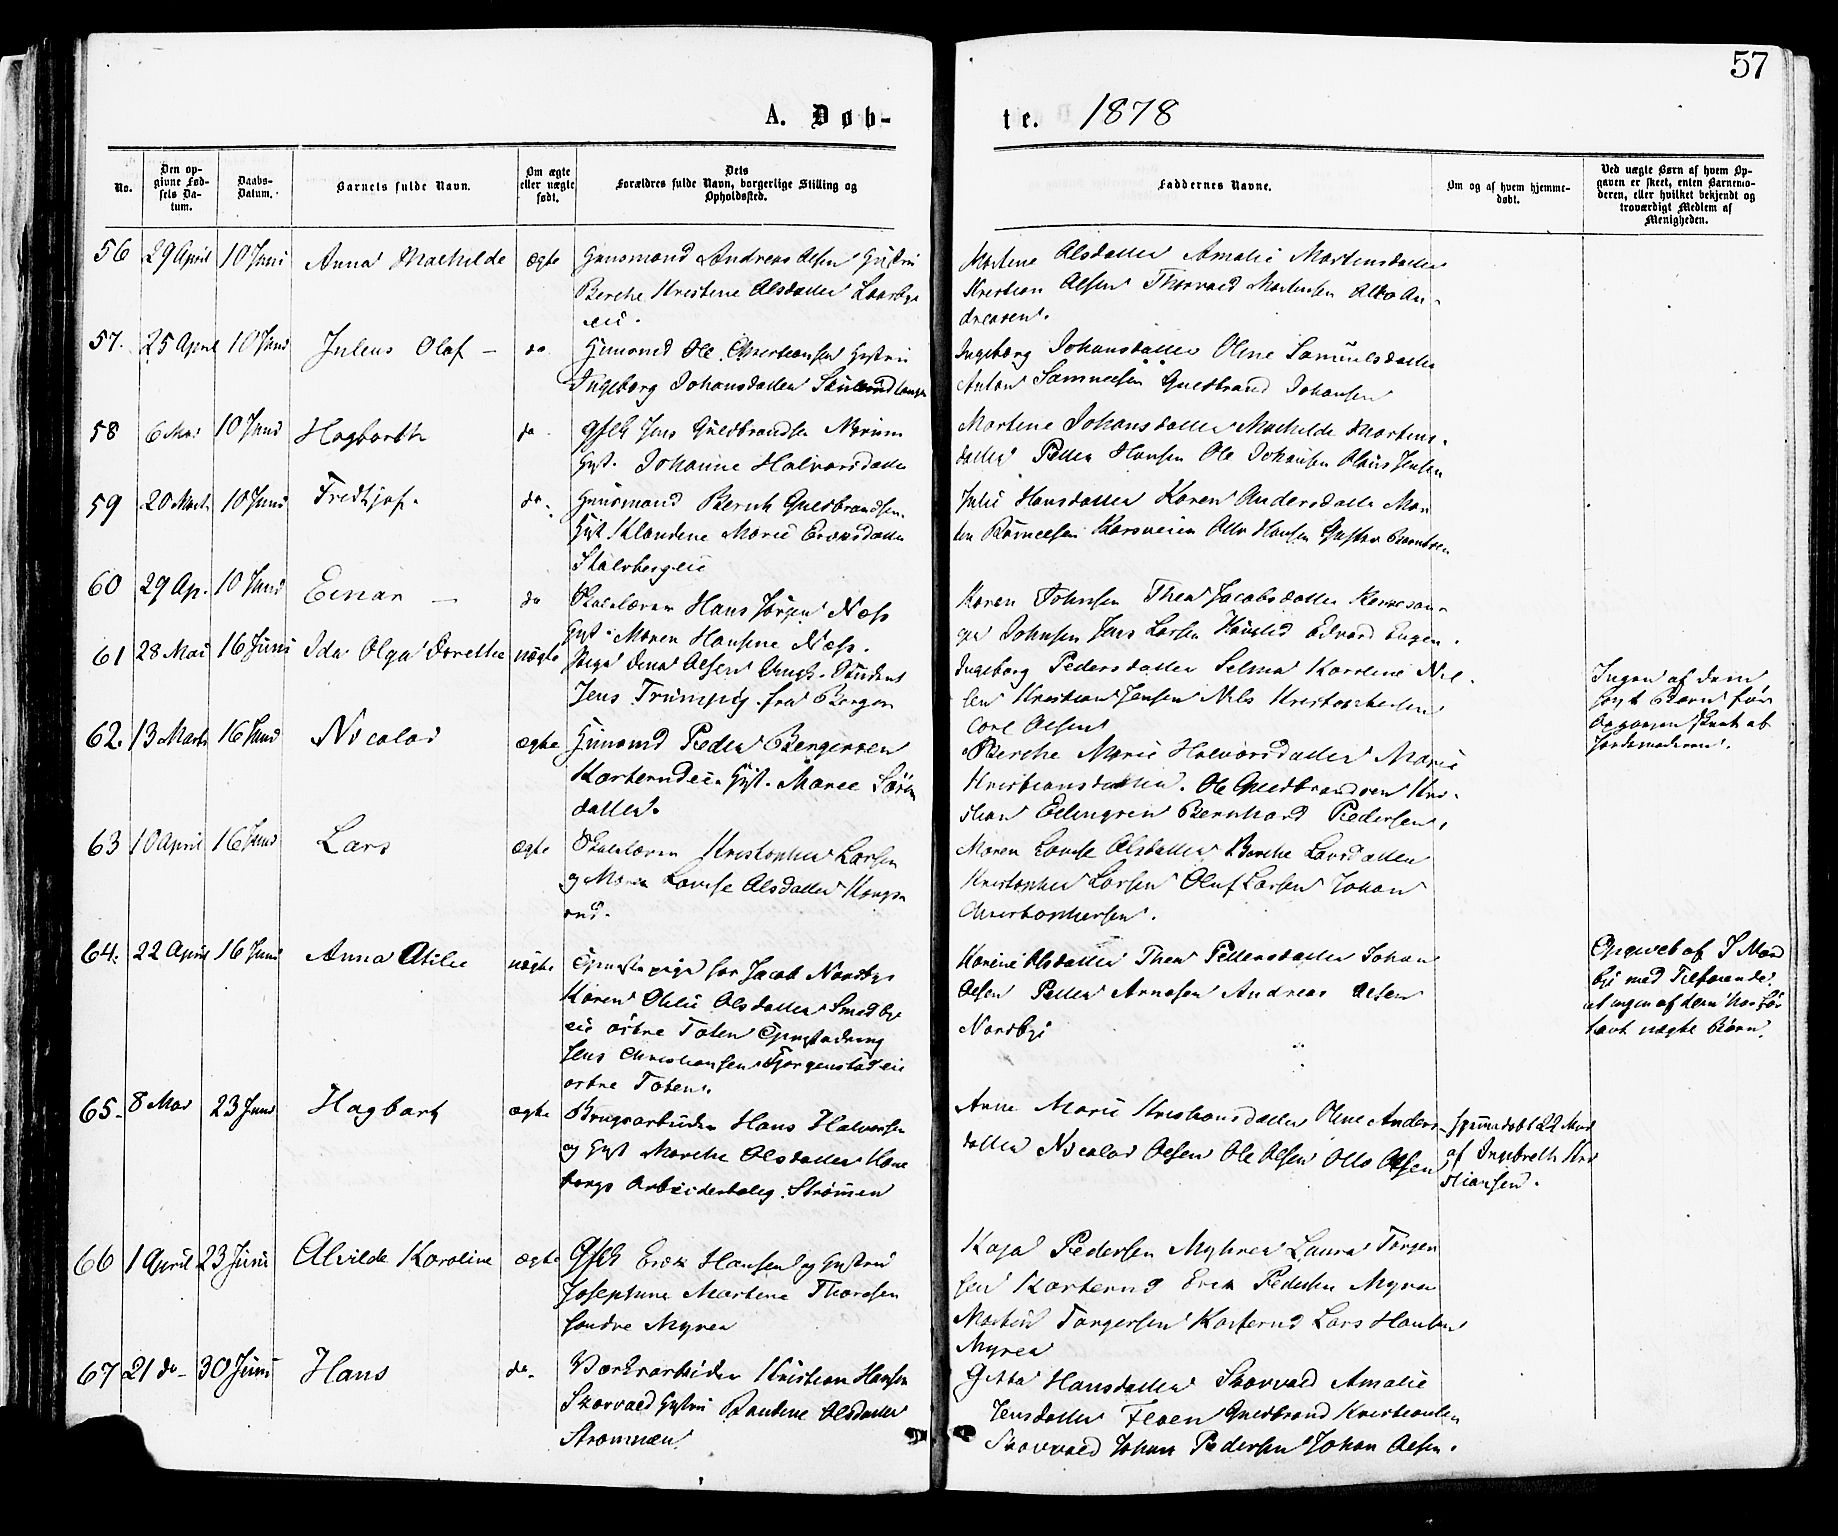 57
A. Døb-
te. 1878
No.
Den op-
givne Fød-
sels Da-
tum.
Daabs-
Datum.
Barnets fulde Navn.
Om ægte
eller uægte
født.
Dets
Forældres fulde Navn, borgerlige Stilling og
Opholdssted.
Faddernes Navne.
Om og af hvem hjemme-
døbt.
Ved uægte Børn af hvem Op-
gaven er skeet, enten Barnemo-
deren, eller hvilket bekjendt og
troværdigt Medlem af
Menigheden.
56 29 April 10 Juni Anna Mathilde ægte Huusmand Andreas Olsen Hustru
Berthe Kristine Olsdatter
eie.
Martene Olsdatter Amalie Martensdatter
Kristian Olsen Thorvald Martensen Otto An-
dreasen.
57. 25 April 10 Juni Julius Olaf – do Huusmd Ole Christiansen Hustru
Ingeborg Johansdatter
Ingeborg Johansdatter Oline Samuelsdatter
Anton Samuelsen Guldbrand Johansen
58 6 Mai 10 Juni Hagbarth do. Jens Guldbrandsen
Hust. Johanne Halvorsdatter
Martene Johansdatter Mathilde Martens-
datter Petter Hansen Ole Johansen Olaus Jensen
59 20 Marts 10 Juni Fredtjof. do. Huusmand Bernt Guldbrandsen.
Hust. Klaudine Marie
Stalsbergeie
Julie Hansdatter Karen Andersdatter Mar
Otto Hansen Gustav Berntsen
60 29 Ap. 10 Juni Einar – do Skolelærer Hans Jørgen Næss
Hust. Maren Hansine Næss.
Karen Johnsen Thea Jacobsdatter
Johnsen Jens Larsen Edvard Eugen.
61 28 Mai 16 Juni Ida Olga Dorethea uægte Pige Dina Olsen Ungk. Student
Jens Trumpig. fra Bergen
Ingeborg Pedersdatter Selma Karoline Niel-
sen Kristian Jensen Nils Kristophersen
Carl Olsen
Ingen af dem
havt Børn før
Opgaven skeet af
Jordemoderen.
62. 13 Marts 16 Juni Nicolai ægte Huusmd Peder Bergersen
Karterudeie Hust. Maree Sørens
datter.
Berthe Marie Halvorsdatter Marie
Kristiansdatter. Ole Guldbrandsen Kri-
stian Ellingsen Bernhard Pedersen.
63 10 April 16 Juni Lars ægte Skolelærer Kristopher Larsen
og Maren Lovise Olsdatter Kongs
rud.
Maren Lovise Olsdatter Berthe Larsdatter
Kristopher Larsen Oluf Larsen Johan
Christophersen.
64. 22 April 16 Juni Anna Otilie uægte Tjenestepige for Jacob Nordby
Karen Otilie Olsdatter Smedby
eie østre Toten Tjenestedreng
Jens Christiansen
østre Toten.
Karine Olsdatter Thea Pettersdatter Johan
Olsen Petter Arnesen Andreas Olsen
Nordby
Opgivet af J Nord
by med Tilføiende
at ingen af dem har før
havt uægte Børn.
65. 8 Mai 23 Juni Hagbart ægte Brugsarbeider Hans Halvorsen
og Hust Marthe Olsdatter
borgs Arbeiderbolig. Strømmen
Anne Marie Kristiansdatter Oline Anders-
datter Nicolai Olsen Ole Olsen Otto Olsen
hjemmedøbt 22 Mai
af Ingebreth Kri
stiansen.
66 1 April 23 Juni Alvilde Karoline ægte Erik Hansen og Hustru
Josephine Martine Thoresen
søndre Myrer
Kaja Pedersen Myhrer Laura Torger
sen Karterud Erik Pedersen Myrer
Martin Torgersen Karterud Lars Hansen
Myrer
67 21 do– 30 Juni Hans do. Værksarbeider Kristian Hansen
Skarvald Hustru Pauline Olsdatter
Strømmen
Hansdatter Skarvald Amalie
Jensdatter Floen Guldbrand Kristiansen
Skarvald Johan Pedersen Johan Olsen.